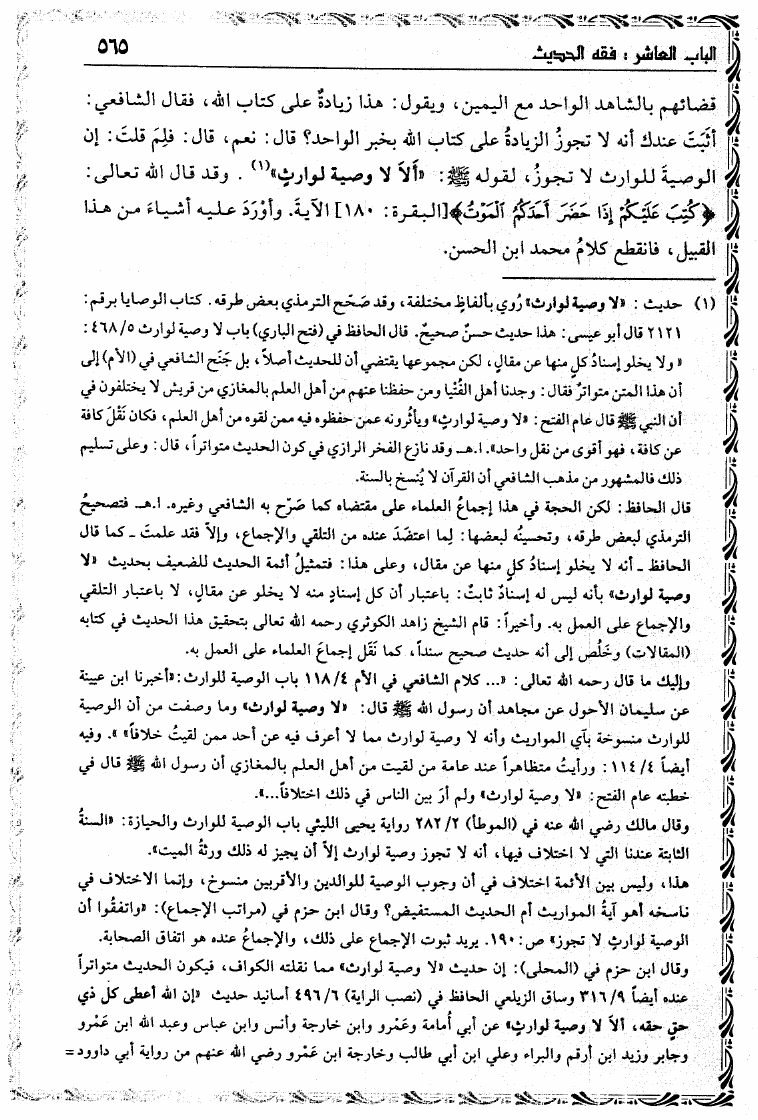 الباب العاشر : فقه الحديث
٥٦٥
قضائهم بالشاهد الواحد مع اليمين، ويقول: هذا زيادةٌ على كتاب الله، فقال الشافعي:
أثَبَتَ عندك أنه لا تجوزُ الزيادةُ على كتاب الله بخبر الواحد؟ قال: نعم، قال: فلِمَ قلتَ: إن
الوصيةَ للوارث لا تجوزُ، لقوله ﷺ: «أَلاَ لا وصية لوارثٍ»(١) . وقد قال الله تعالى:
﴿كُتِبَ عَلَيْكُمْ إِذَا حَضَرَ أَحَدَكُمُ الْمَوْتُ﴾[البقرة: ١٨٠] الآيةَ. وأوْرَدَ عليه أشياءَ من هذا
القبيل، فانقطع كلامُ محمد ابن الحسن.
(١) حديث: «لا وصية لوارث» رُوي بألفاظٍ مختلفة، وقد صَحّح الترمذي بعض طرقه. كتاب الوصايا برقم:
٢١٢١ قال أبو عيسى: هذا حديث حسنٌ صحيحٌ. قال الحافظ في (فتح الباري) باب لا وصية لوارث ٤٦٨/٥:
«ولا يخلو إسنادُ كلٍ منها عن مقالٍ، لكن مجموعها يقتضي أن للحديث أصلاً، بل جَنَح الشافعي في (الأم) إلى
أن هذا المتن متواترٌ فقال: وجدنا أهل الفُتْيا ومن حفظنا عنهم من أهل العلم بالمغازي من قريش لا يختلفون في
أن النبي ﷺ قال عام الفتح: «لا وصية لوارثٍ» ويأثُرونه عمن حفظوه فيه ممن لقوه من أهل العلم، فكان نَقْلَ كافة
عن كافة، فهو أقوى من نقل واحد». ا.هـ وقد نازع الفخر الرازي في كون الحديث متواتراً، قال: وعلى تسليم
ذلك فالمشهور من مذهب الشافعي أن القرآن لا يُنسخ بالسنة.
قال الحافظ: لكن الحجة في هذا إجماعُ العلماء على مقتضاه كما صَرّح به الشافعي وغيره. ا.هـ فتصحيحُ
الترمذي لبعض طرقه، وتحسينُه لبعضها: لِما اعتضَدَ عنده من التلقي والإجماع، وإلاّ فقد علمتَ ـ كما قال
الحافظ ـ أنه لا يخلو إسنادُ كلٍ منها عن مقال، وعلى هذا: فتمثيلُ أئمة الحديث للضعيف بحديث «لا
وصية لوارث» بأنه ليس له إسنادٌ ثابتٌ: باعتبار أن كل إسنادٍ منه لا يخلو عن مقالٍ، لا باعتبار التلقي
والإجماع على العمل به. وأخيراً: قام الشيخ زاهد الكوثري رحمه الله تعالى بتحقيق هذا الحديث في كتابه
(المقالات) وخَلُص إلى أنه حديث صحيح سنداً، كما نَقَل إجماعَ العلماء على العمل به.
وإليك ما قال رحمه الله تعالى: «... كلام الشافعي في الأم ١١٨/٤ باب الوصية للوارث:«أخبرنا ابن عيينة
عن سليمان الأحول عن مجاهد أن رسول الله ﷺ قال: «لا وصية لوارث» وما وصفت من أن الوصية
للوارث منسوخة بآي المواريث وأنه لا وصية لوارث مما لا أعرف فيه عن أحد ممن لقيتُ خلافاً» ». وفيه
أيضاً ١١٤/٤: ورأيتُ متظاهراً عند عامة من لقيت من أهل العلم بالمغازي أن رسول الله ﷺ قال في
خطبته عام الفتح: «لا وصية لوارث» ولم أرَ بين الناس في ذلك اختلافاً...».
وقال مالك رضي الله عنه في (الموطأ) ٢٨٢/٢ رواية يحيى الليثي باب الوصية للوارث والحيازة: «السنةُ
الثابتة عندنا التي لا اختلاف فيها، أنه لا تجوز وصية لوارث إلاّ أن يجيز له ذلك ورثةُ الميت».
هذا، وليس بين الأئمة اختلاف في أن وجوب الوصية للوالدين والأقربين منسوخ، وإنما الاختلاف في
ناسخه أهو آيةُ المواريث أم الحديث المستفيض؟ وقال ابن حزم في (مراتب الإجماع): «واتفقُوا أن
الوصية لوارثٍ لا تجوز» ص: ١٩٠. يريد ثبوت الإجماع على ذلك، والإجماعُ عنده هو اتفاق الصحابة.
وقال ابن حزم في (المحلى): إن حديث «لا وصية لوارث» مما نقلته الكواف، فيكون الحديث متواتراً
عنده أيضاً ٣١٦/٩ وساق الزيلعي الحافظ في (نصب الراية) ٤٩٦/٦ أسانيد حديث «إن الله أعطى كلَّ ذي
حقٍ حقه، ألاَ لا وصية لوارثٍ» عن أبي أُمامة وعَمْرو وابن خارجة وأنس وابن عباس وعبد الله ابن عَمْرو
وجابر وزيد ابن أرقم والبراء وعلي ابن أبي طالب وخارجة ابن عَمْرو رضي الله عنهم من رواية أبي داوود =